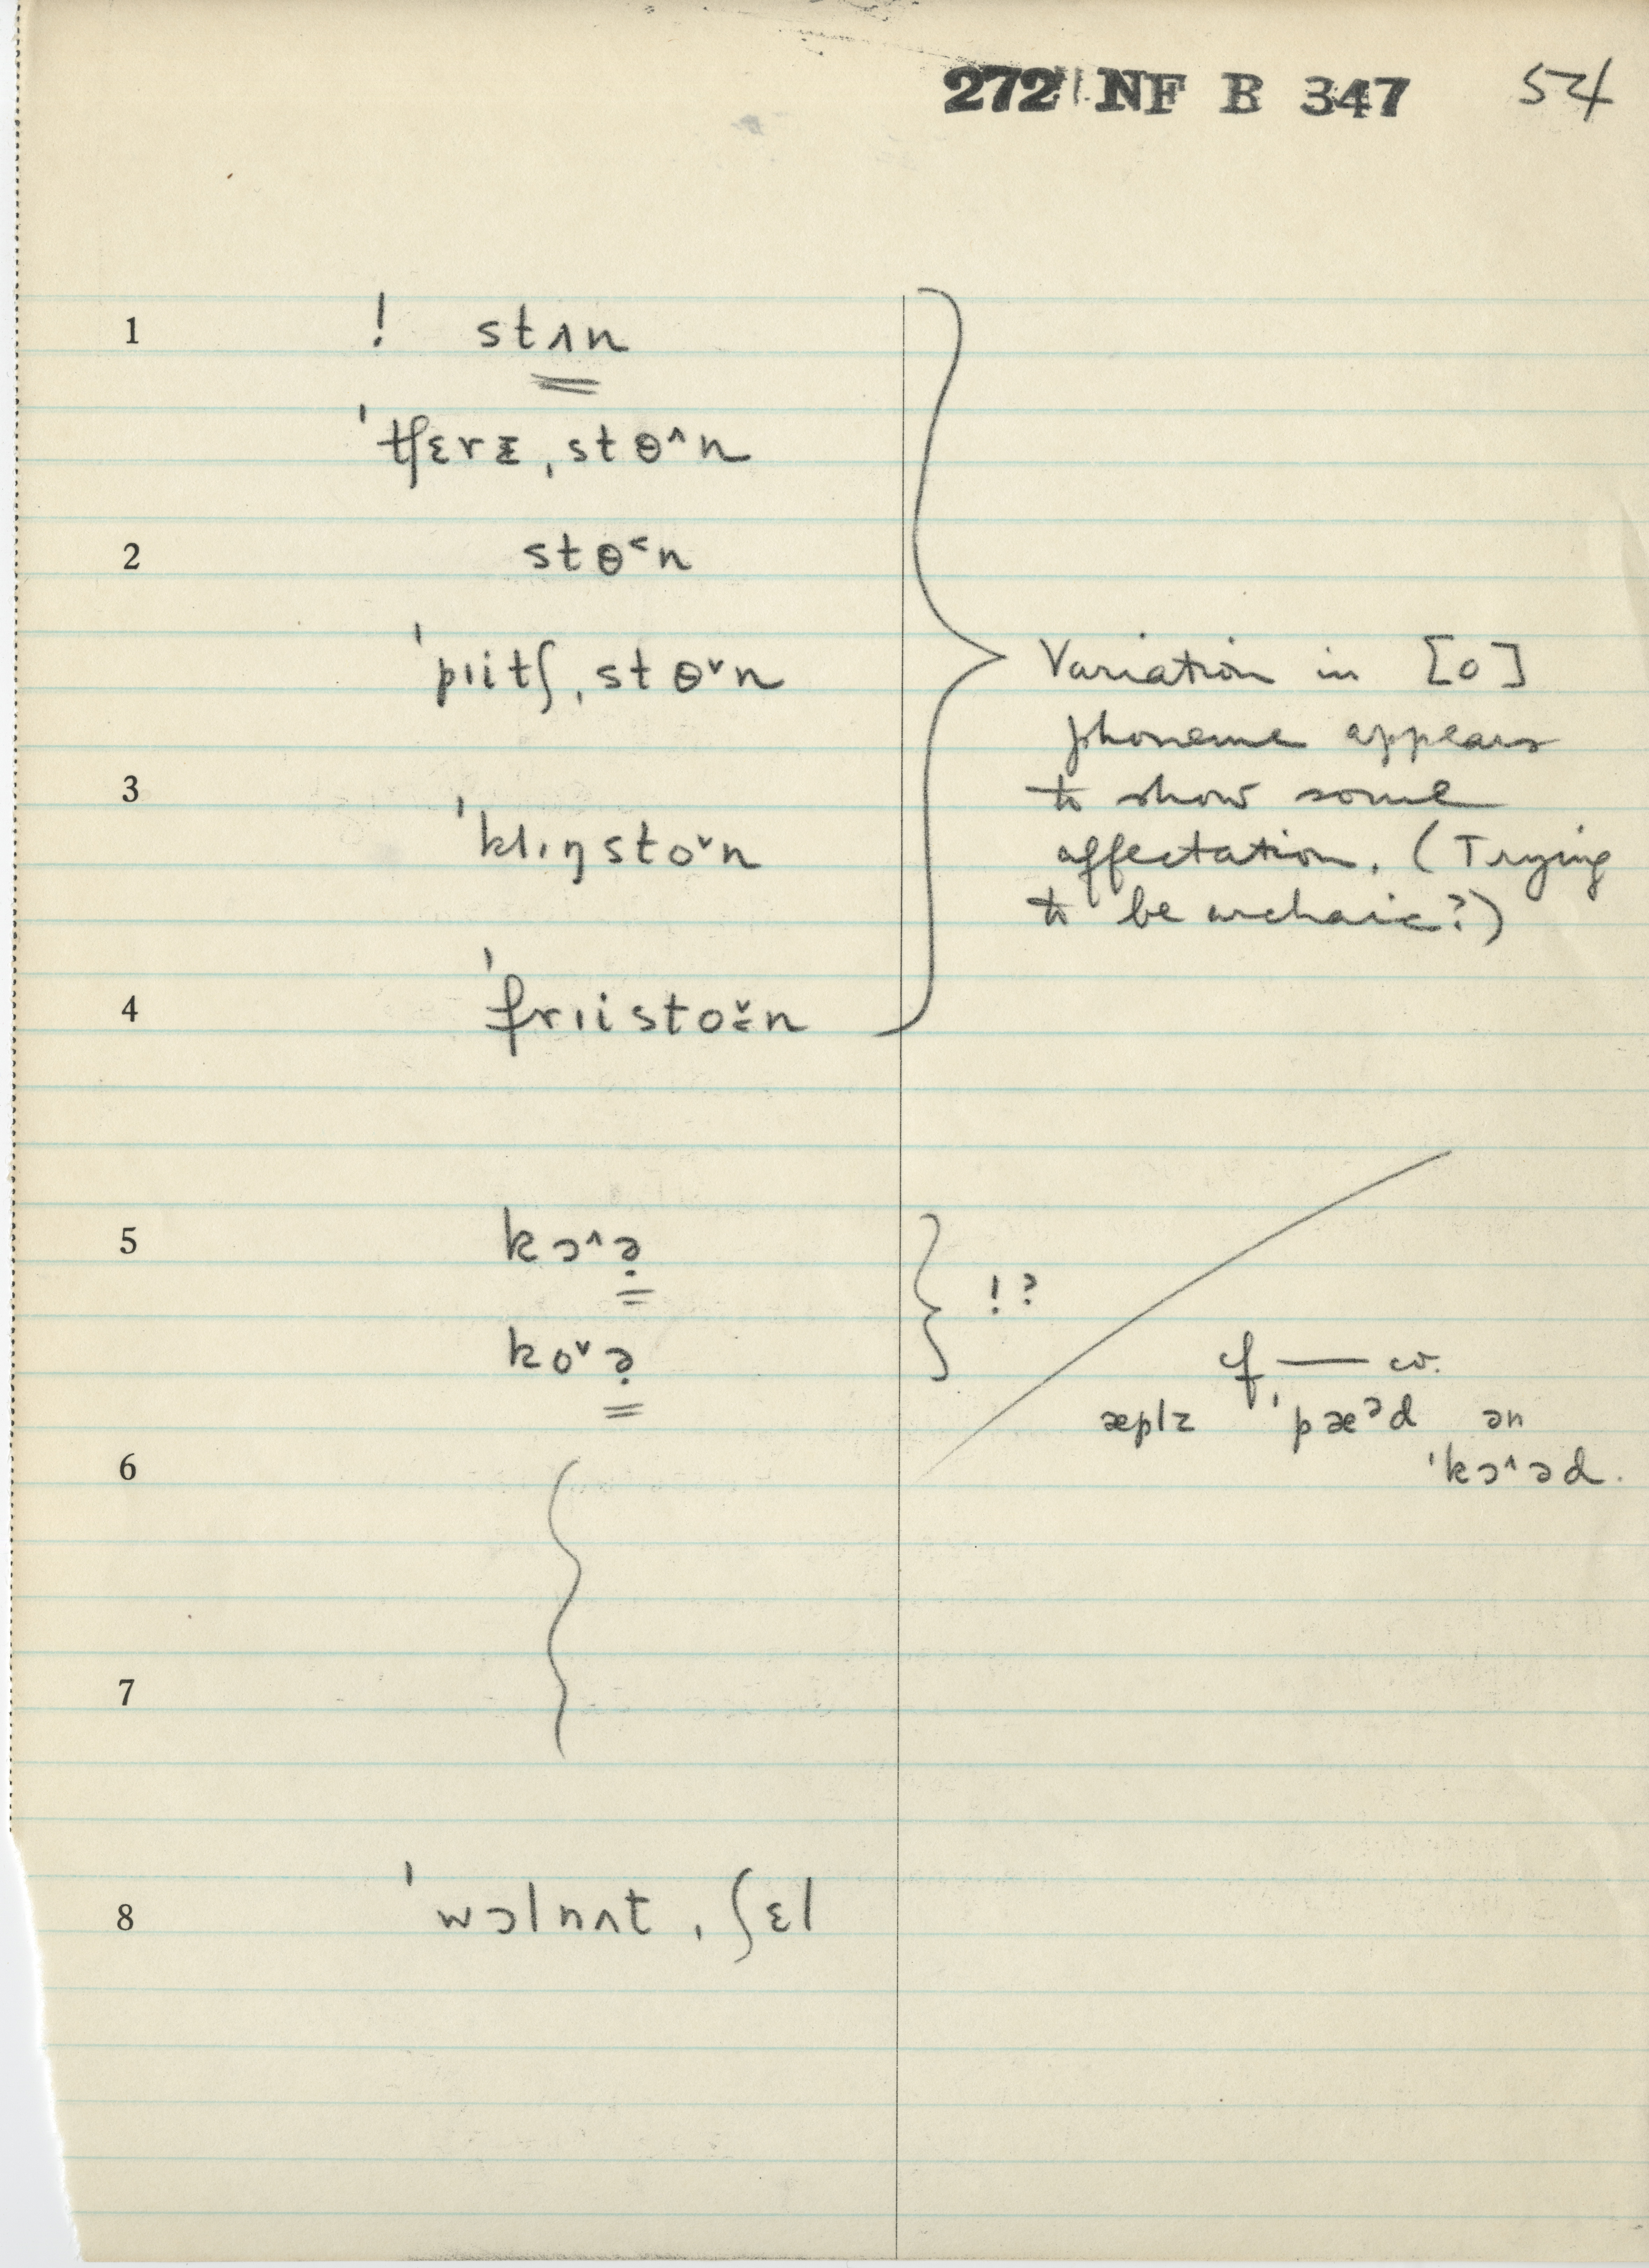 272 NF B 347 54
1 ! stʌn
ˈtʃɛrᵻˌstɵ˄n
2 stɵ˂n
ˈpɪitʃˌstɵ˅n
Variation in [o]
phoneme appears
3 to show some
ˈklɪŋsto˅n affectation. (Trying
to be archaic?)
4 ˈfrɪisto˅n
5 kɔ˄ə̣
!?
ko˅ə̣
cf — cw.
æplz ˈpæᵊd ən
6 ˈkɔ˄əd.
7
8 ˈwɔlnʌtˌʃɛl